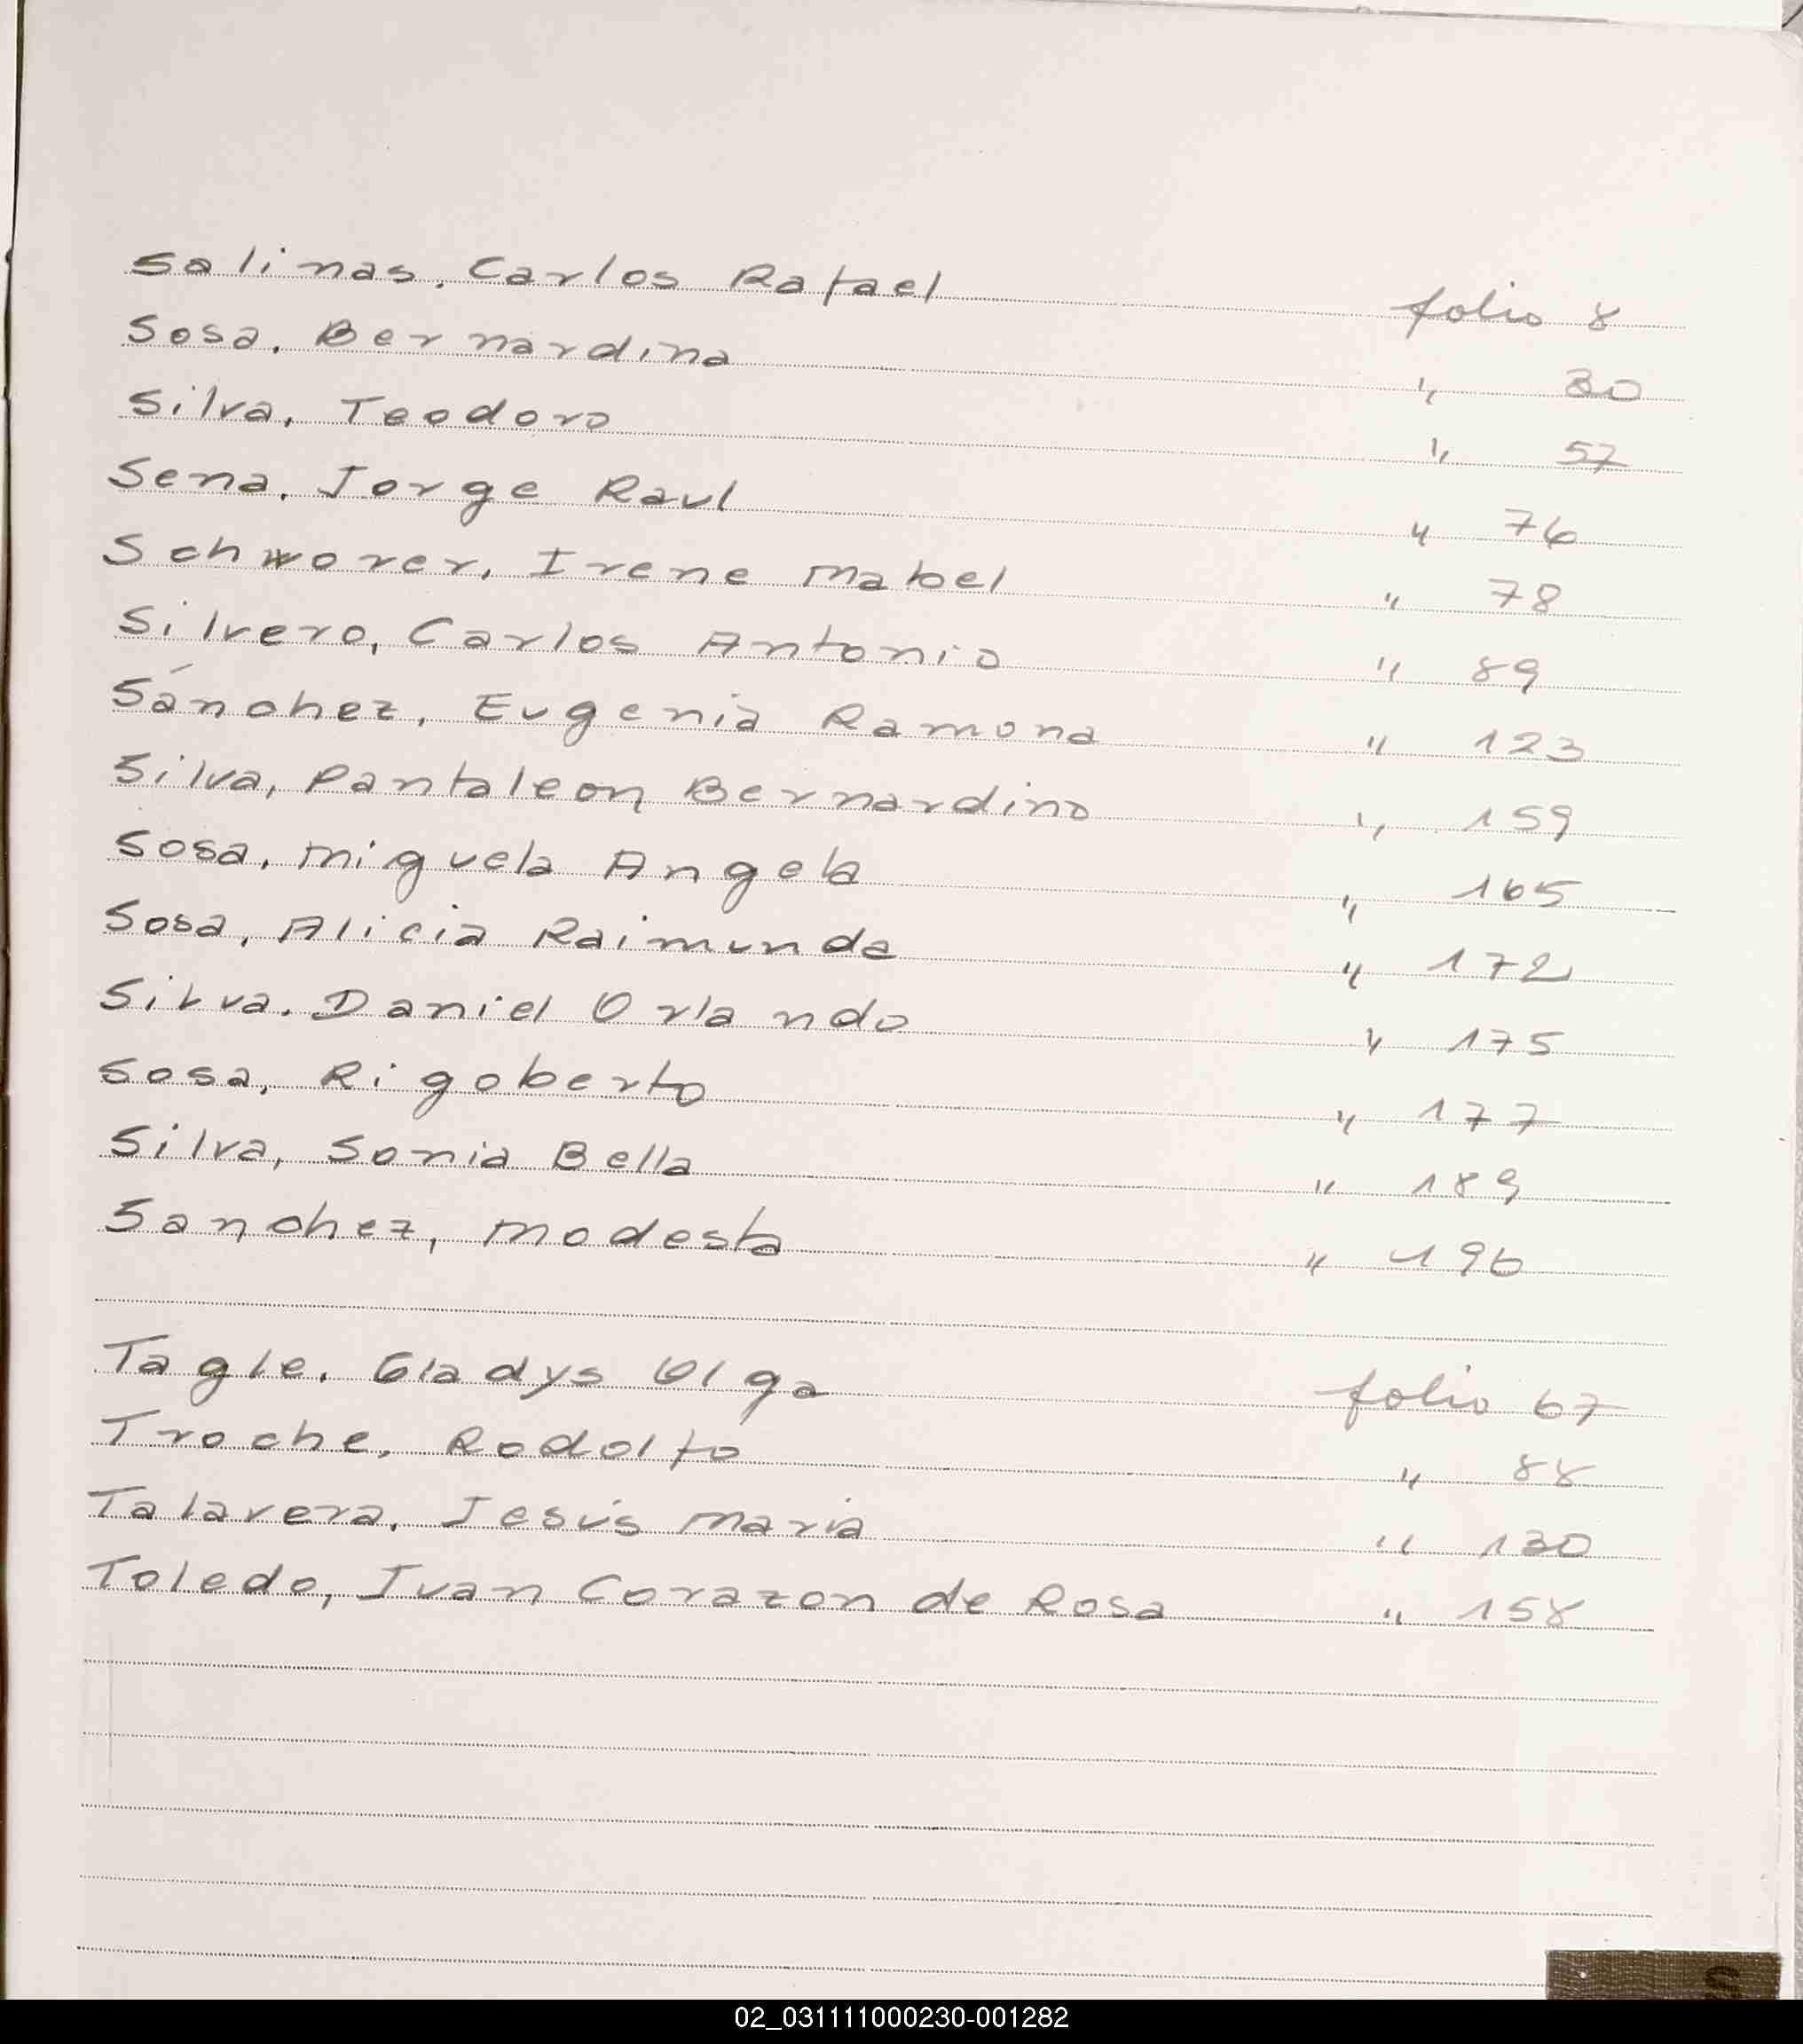 Salinas, Carlos Rafael folio 8
Sosa, Bernardina " 30
Silva, Teodoro " 57
Sena, Jorge Raul " 76
Schworer, Irene Mabel " 78
Silvero, Carlos Antonio " 89
Sánchez, Eugenia Ramona " 123
Silva, Pantaleon Bernardino " 159
Sosa, Miguela Angela " 165
Sosa, Alicia Raimunda " 172
Silva, Daniel Orlando " 175
Sosa, Rigoberto " 177
Silva, Sonia Bella " 189
Sanchez, Modesta " 196
Tagle, Gladys Olga folio 67
Troche, Rodolfo " 88
Talavera, Jesús Maria " 130
Toledo, Ivan Corazon de Rosa " 158
02_031111000230-001282